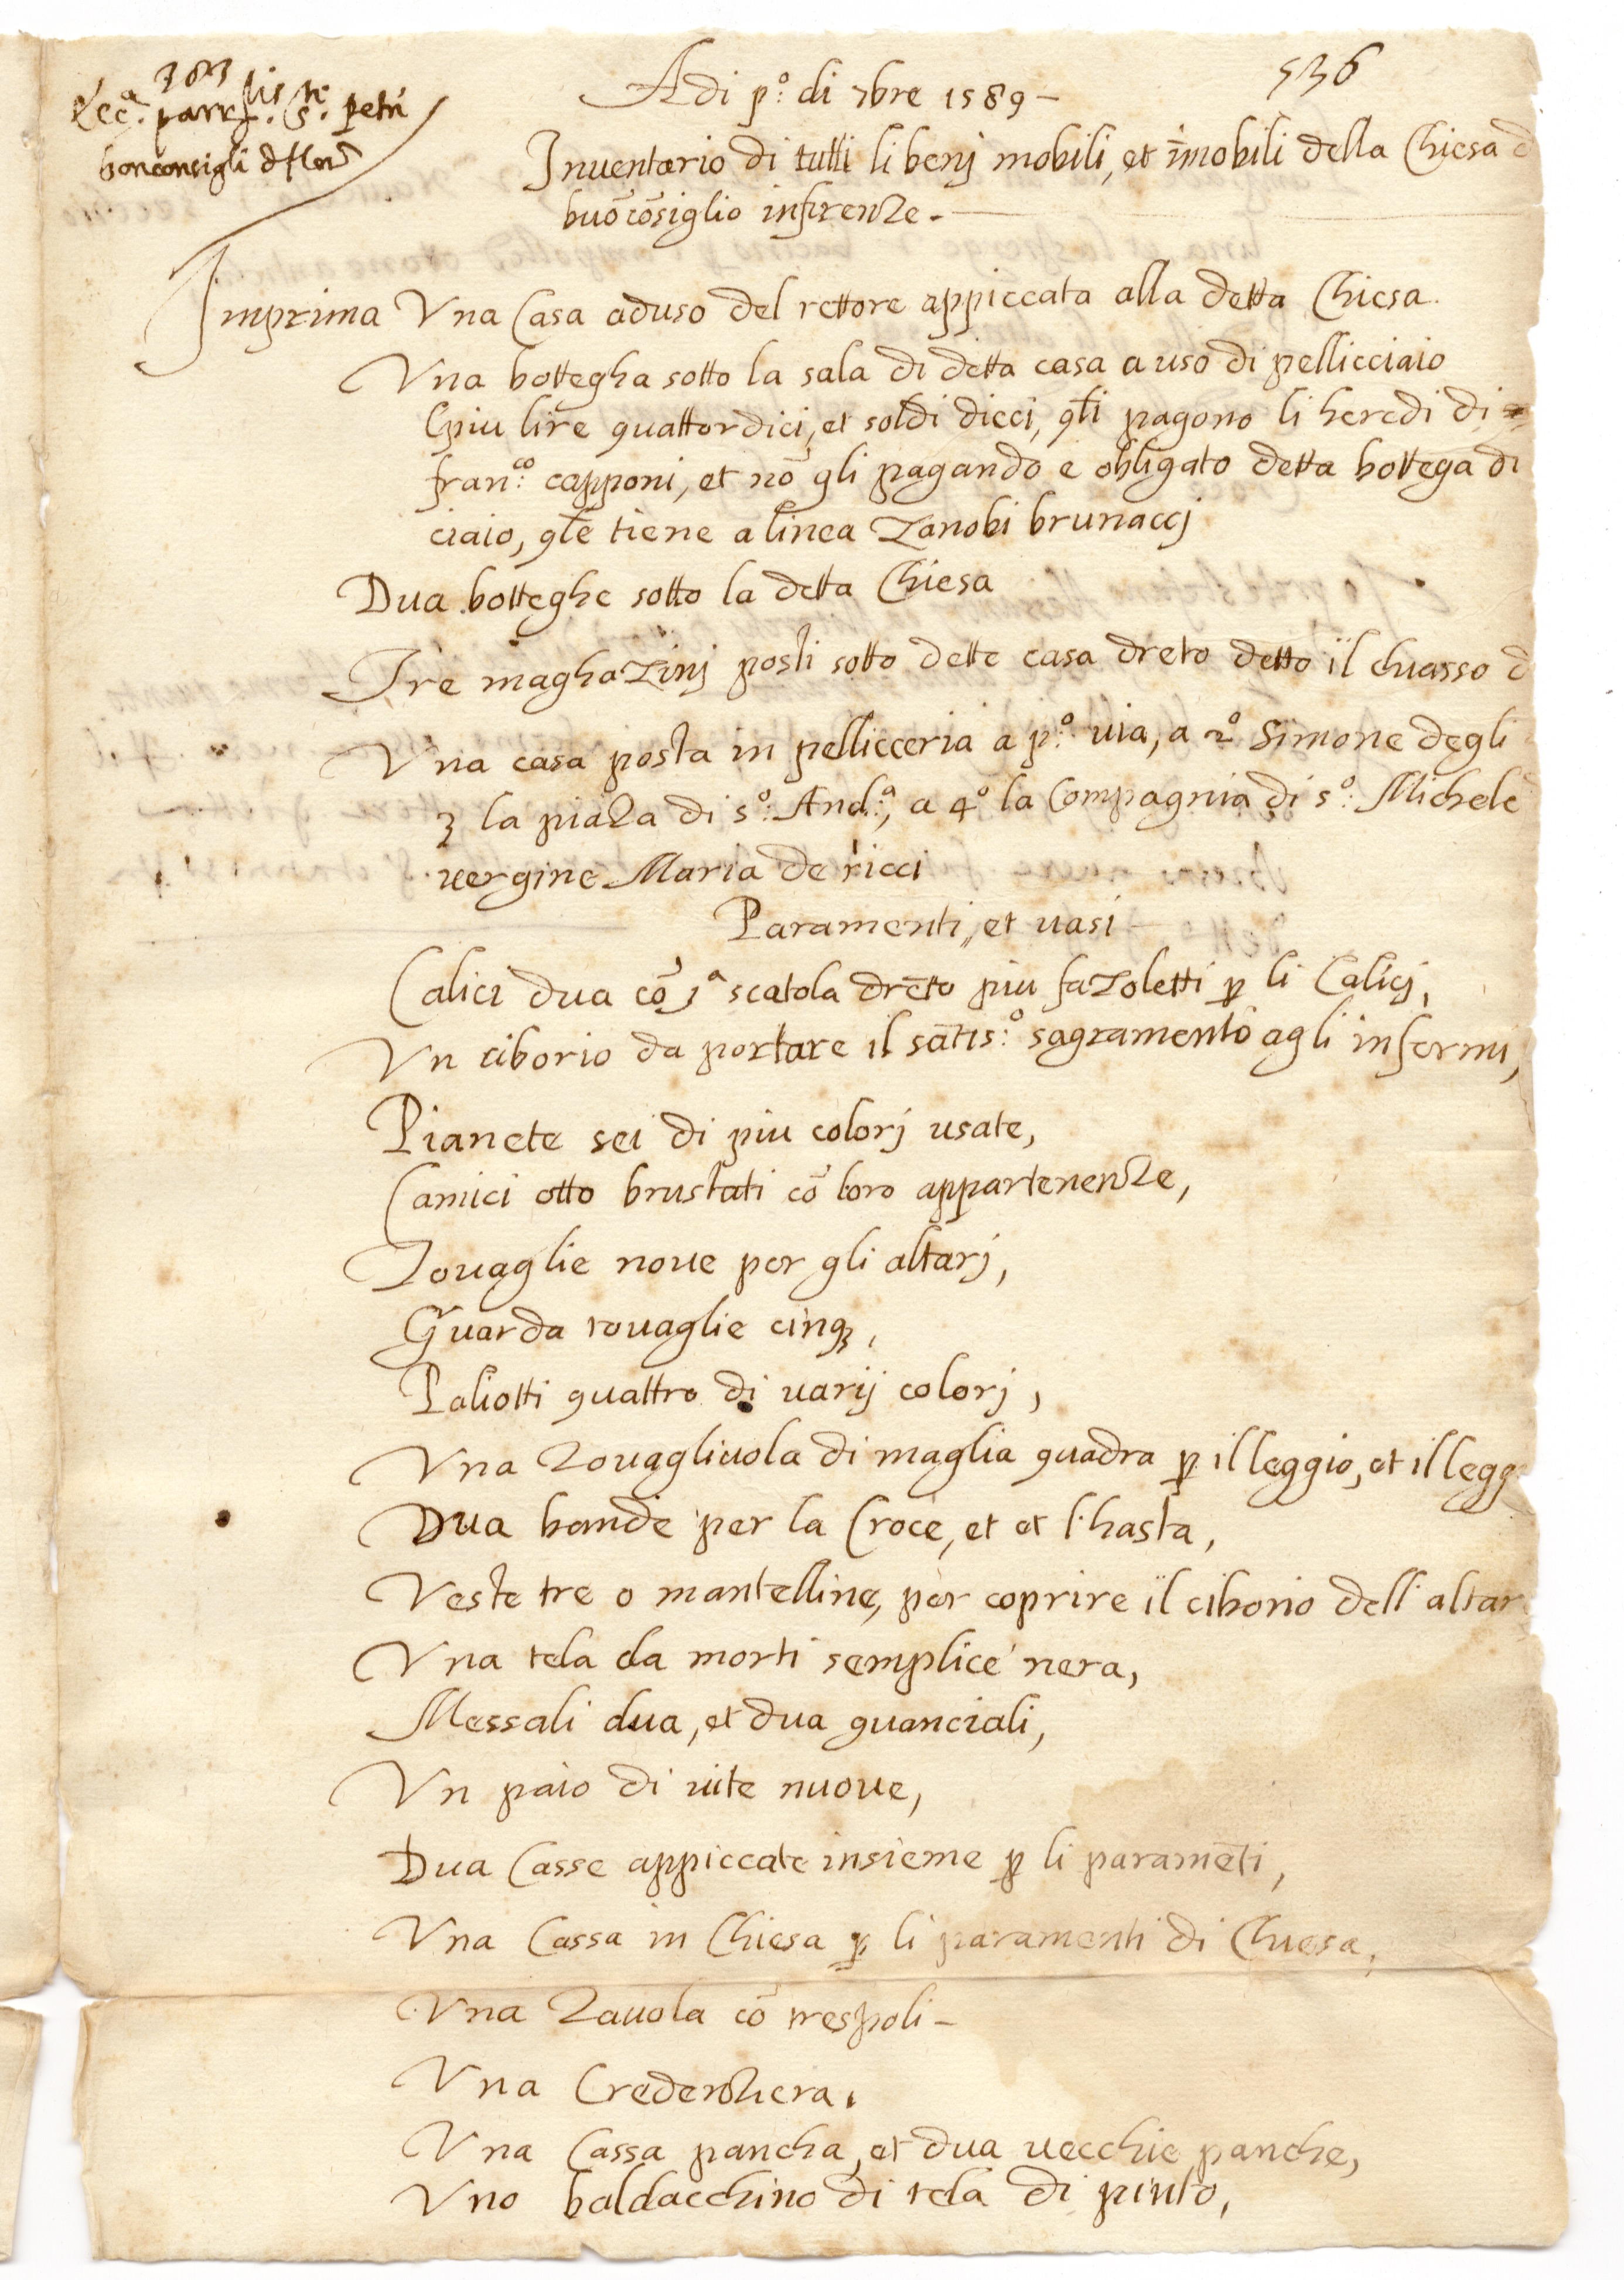 383
Ecc.ª parr.lis S.ti petri
bonconsigli d flor
536
Adi p.º di 7bre 1589 –
Inuentario di tutti li benj mobili, et īmobili della Chiesa d
buōcōsiglio infirenze. –
Imprima Vna Casa aduso del rettore appiccata alla detta Chiesa.
Vna bottegha sotto la sala di detta casa a uso di pellicciaio
piu lire quattordici, et soldi dieci, q̄li pagono li heredi di
fran.co capponi, et nō gli pagando e obligato detta bottega di
ciaio, q̄le tiene a linea Zanobi brunaccj
Dua botteghe sotto la detta Chiesa
Tre maghazinj posti sotto dette casa dreto detto il chiasso d
Vna casa posta in pellicceria a p.º uia, a 2º Simone degli
3 la piaza di s.º And.ª, a 4º la Compagnia di s.º Michele
uergine Maria de ricci
Paramenti, et uasi
Calici dua cō jª scatola drēto piu fazoletti p̱ li Calicj,
Vn ciborio da portare il sātis.º sagramento agli infermi,
Pianete sei di piu colorj usate,
Camici otto brustati cō loro appartenenze,
Touaglie noue per gli altarj,
Guarda touaglie cinqꝫ,
Paliotti quattro di uarij colorj,
Vna Touagliuola di maglia quadra p̱ il leggio, et il legg
Dua bande per la Croce, et et l'hasta,
Veste tre o mantelline, per coprire il ciborio dell'altar
Vna tela da morti semplice nera,
Messali dua, et dua guanciali,
Vn paio di uite nuoue,
Dua Casse appiccate insieme p̱ li paramēti,
Vna Cassa in Chiesa p̱ li paramenti di Chiesa,
Vna Tauola cō trespoli –
Vna Credenziera,
Vna Cassa pancha, et dua uecchie panche,
Vno baldacchino di tela di pinto,